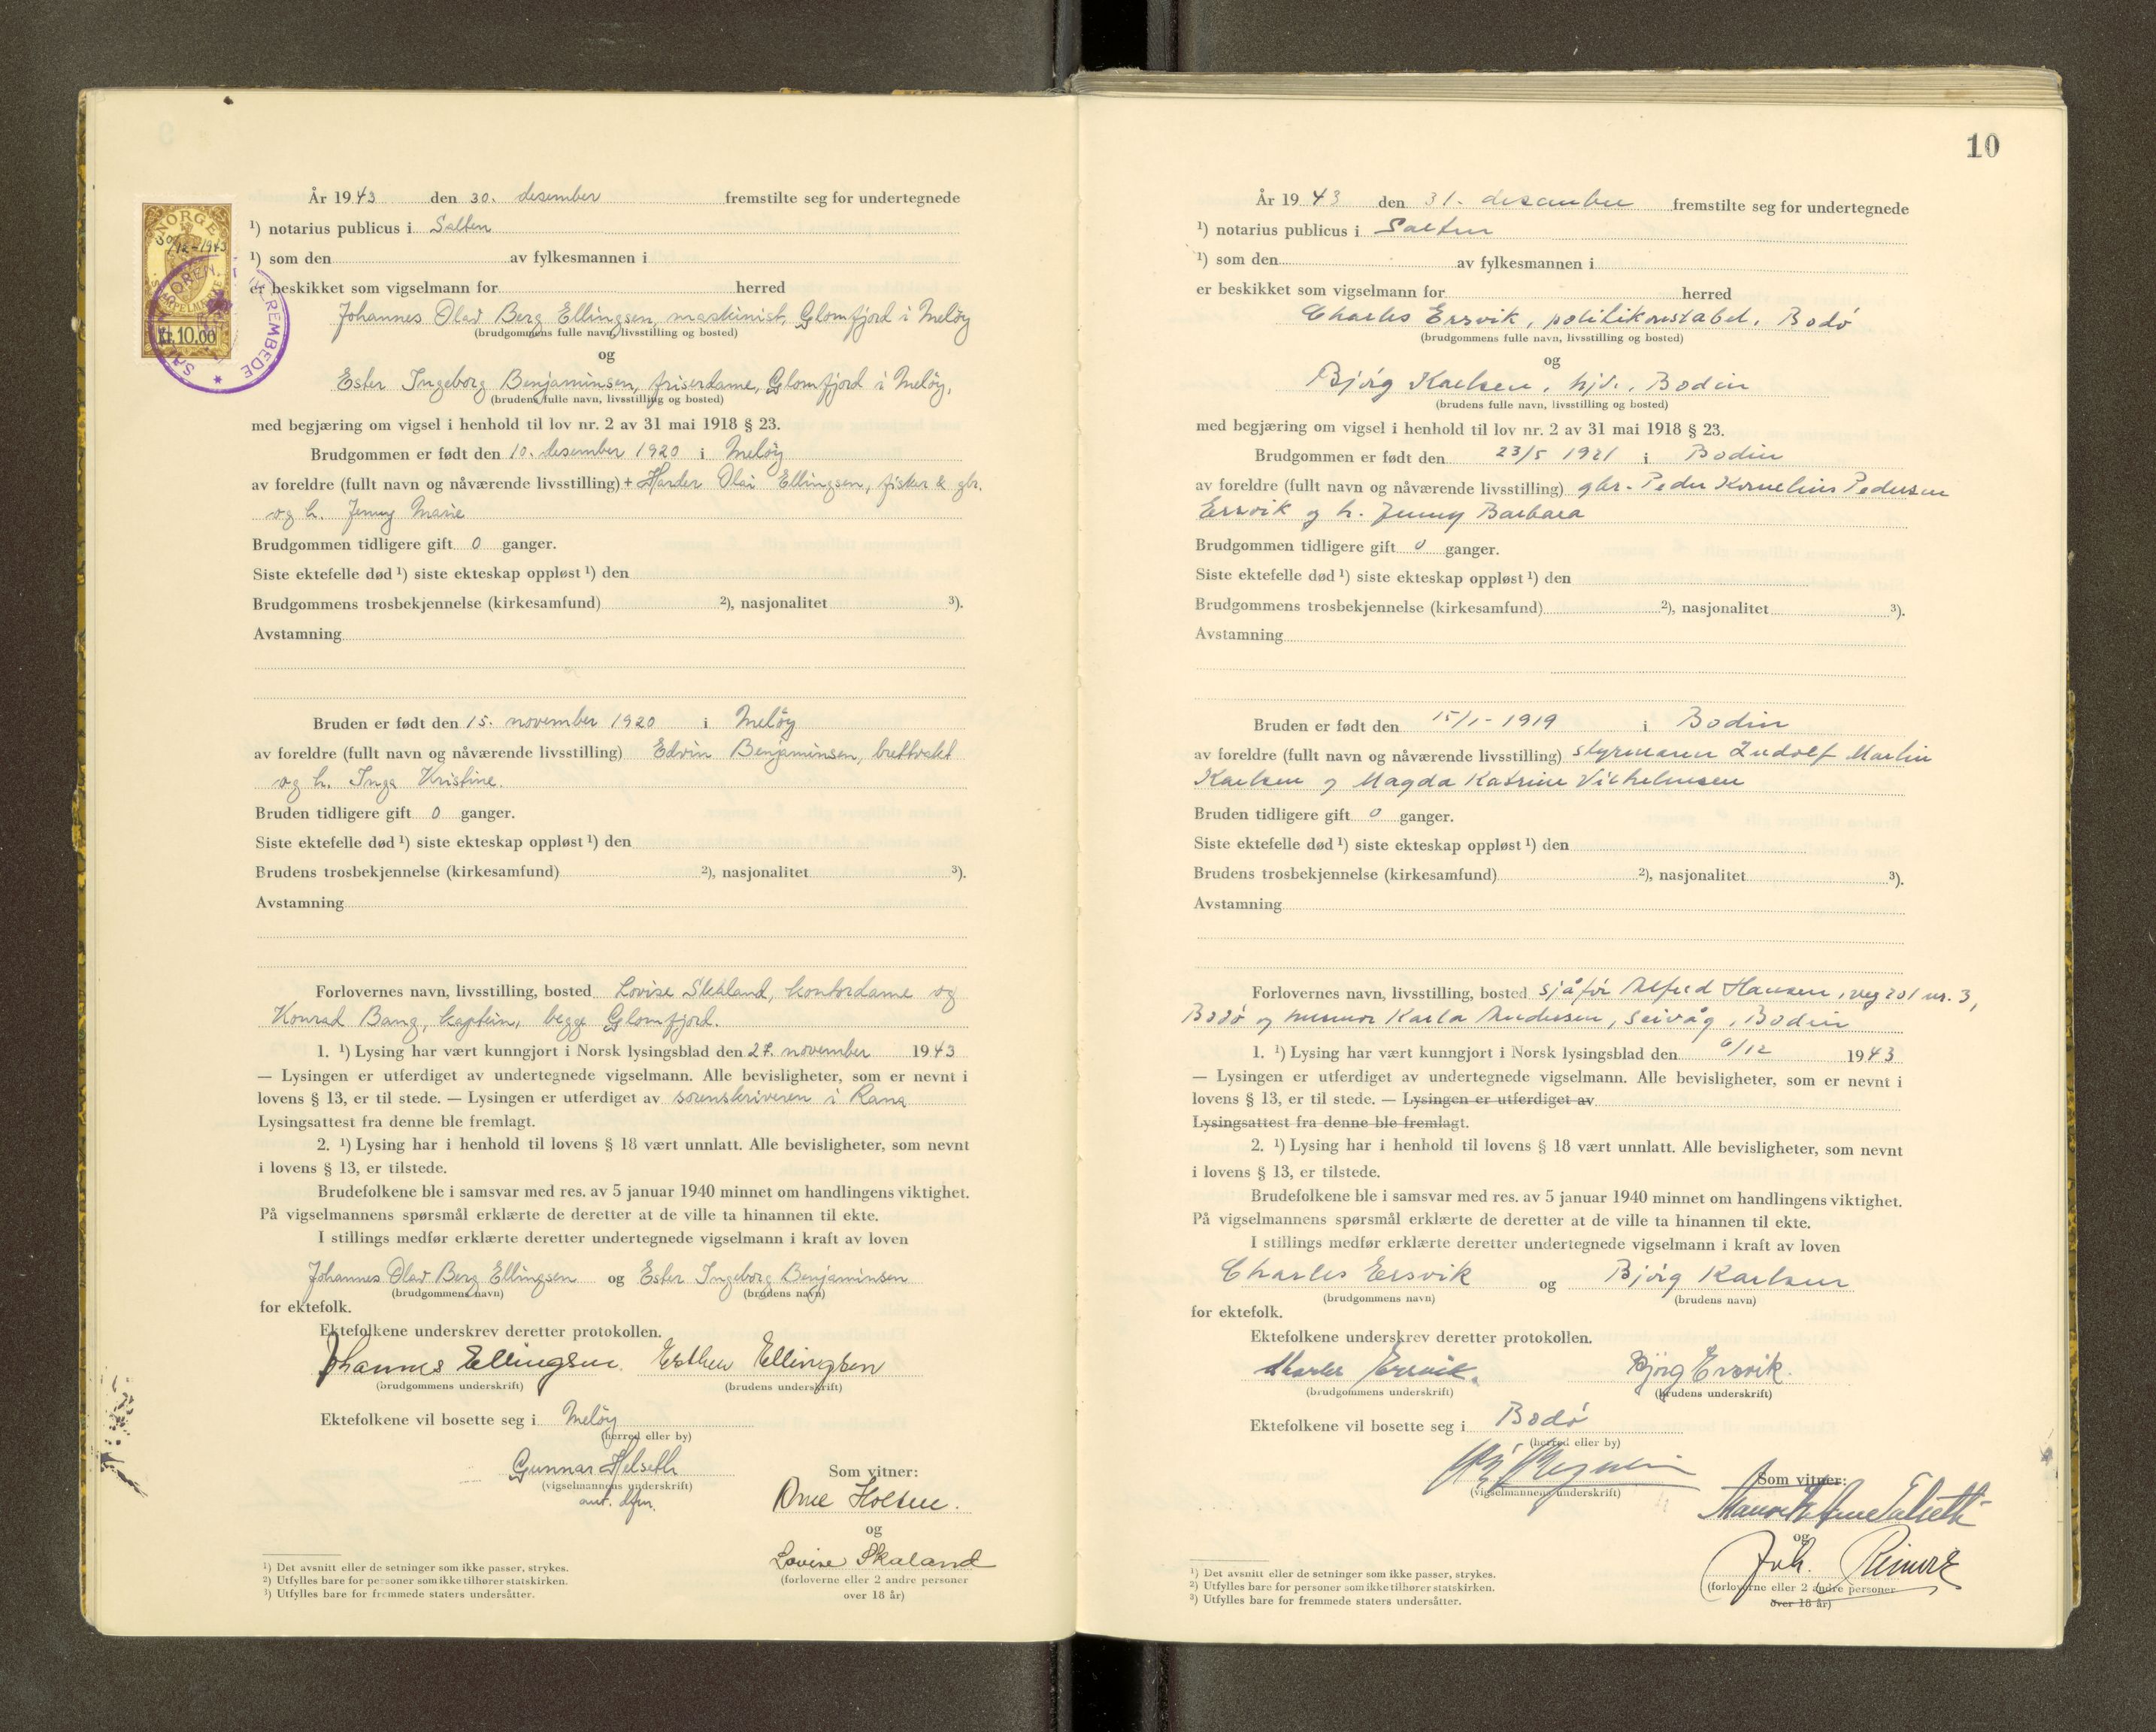 År 1943 den 30. desember fremstilte seg for undertegnede
¹) notarius publicus i Salten
¹) som den av fylkesmannen i
er beskikket som vigselmann for herred
Johannes Olav Berg Ellingsen, maskinist, Glomfjord i Meløy
(brudgommens fulle navn, livsstilling og bosted)
og
Ester Ingeborg Benjaminsen, friserdame, Glomfjord i Meløy,
(brudens fulle navn, livsstilling og bosted)
med begjæring om vigsel i henhold til lov nr. 2 av 31 mai 1918 § 23.
Brudgommen er født den 10. desember 1920 i Meløy
av foreldre (fullt navn og nåværende livsstilling) + Harder Olai Ellingsen, fisker & gbr.
og h. Jenny Marie
Brudgommen tidligere gift 0 ganger.
Siste ektefelle død ¹) siste ekteskap oppløst ¹) den
Brudgommens trosbekjennelse (kirkesamfund) ²), nasjonalitet ³).
Avstamning
Bruden er født den 15. november 1920 i Meløy
av foreldre (fullt navn og nåværende livsstilling) Edvin Benjaminsen,
og h. Inga Kristine.
Bruden tidligere gift 0 ganger.
Siste ektefelle død ¹) siste ekteskap oppløst ¹) den
Brudens trosbekjennelse (kirkesamfund) ²), nasjonalitet ³).
Avstamning
Forlovernes navn, livsstilling, bosted Lovise Skaland, kontordame og
Konrad Bang, kaptein, begge Glomfjord.
1. ¹) Lysing har vært kunngjort i Norsk lysingsblad den 27. november 1943
— Lysingen er utferdiget av undertegnede vigselmann. Alle bevisligheter, som er nevnt i
lovens § 13, er til stede. — Lysingen er utferdiget av sorenskriveren i Rana
Lysingsattest fra denne ble fremlagt.
2. ¹) Lysing har i henhold til lovens § 18 vært unnlatt. Alle bevisligheter, som nevnt
i lovens § 13, er tilstede.
Brudefolkene ble i samsvar med res. av 5 januar 1940 minnet om handlingens viktighet.
På vigselmannens spørsmål erklærte de deretter at de ville ta hinannen til ekte.
I stillings medfør erklærte deretter undertegnede vigselmann i kraft av loven
Johannes Olav Berg Ellingsen og Ester Ingeborg Benjaminsen
(brudgommens navn) (brudens navn)
for ektefolk.
Ektefolkene underskrev deretter protokollen.
Johannes Ellingsen. Esther Ellingsen
(brudgommens underskrift) (brudens underskrift)
Ektefolkene vil bosette seg i Meløy
(herred eller by)
Gunnar Helseth
(vigselmannens underskrift)
Som vitner:
Arne Holten.
og
Lovise Skaland
(forloverne eller 2 andre personer
over 18 år)
¹) Det avsnitt eller de setninger som ikke passer, strykes.
²) Utfylles bare for personer som ikke tilhører statskirken.
³) Utfylles bare for fremmede staters undersåtter.
NORGE
30/12-1943
Kr 10.00
10
År 1943 den 31. desember fremstilte seg for undertegnede
¹) notarius publicus i Salten
¹) som den av fylkesmannen i
er beskikket som vigselmann for herred
Charles Ersvik, politikonstabel, Bodø
(brudgommens fulle navn, livsstilling og bosted)
og
Bjørg Karlsen, hjv., Bodin
(brudens fulle navn, livsstilling og bosted)
med begjæring om vigsel i henhold til lov nr. 2 av 31 mai 1918 § 23.
Brudgommen er født den 23/5 1921 i Bodin
av foreldre (fullt navn og nåværende livsstilling) gbr. Peder Kornelius Pedersen
Ersvik og h. Jenny Barbara
Brudgommen tidligere gift 0 ganger.
Siste ektefelle død ¹) siste ekteskap oppløst ¹) den
Brudgommens trosbekjennelse (kirkesamfund) ²), nasjonalitet ³).
Avstamning
Bruden er født den 15/1-1919 i Bodin
av foreldre (fullt navn og nåværende livsstilling) styrmann Ludolf Martin
Karlsen og Magda Katrine Vilhelmsen
Bruden tidligere gift 0 ganger.
Siste ektefelle død ¹) siste ekteskap oppløst ¹) den
Brudens trosbekjennelse (kirkesamfund) ²), nasjonalitet ³).
Avstamning
Forlovernes navn, livsstilling, bosted sjåfør Alfred Hansen, veg 201 nr. 3,
Bodø og husmor Karla Andersen, Seivåg, Bodin
1. ¹) Lysing har vært kunngjort i Norsk lysingsblad den 6/12 1943
— Lysingen er utferdiget av undertegnede vigselmann. Alle bevisligheter, som er nevnt i
lovens § 13, er til stede. — Lysingen er utferdiget av
Lysingsattest fra denne ble fremlagt.
2. ¹) Lysing har i henhold til lovens § 18 vært unnlatt. Alle bevisligheter, som nevnt
i lovens § 13, er tilstede.
Brudefolkene ble i samsvar med res. av 5 januar 1940 minnet om handlingens viktighet.
På vigselmannens spørsmål erklærte de deretter at de ville ta hinannen til ekte.
I stillings medfør erklærte deretter undertegnede vigselmann i kraft av loven
Charles Ersvik og Bjørg Karlsen
(brudgommens navn) (brudens navn)
for ektefolk.
Ektefolkene underskrev deretter protokollen.
Charles Ersvik. Bjørg Ersvik.
(brudgommens underskrift) (brudens underskrift)
Ektefolkene vil bosette seg i Bodø
(herred eller by)
(vigselmannens underskrift)
Som vitner:
og
Joh.
(forloverne eller 2 andre personer
over 18 år)
¹) Det avsnitt eller de setninger som ikke passer, strykes.
²) Utfylles bare for personer som ikke tilhører statskirken.
³) Utfylles bare for fremmede staters undersåtter.